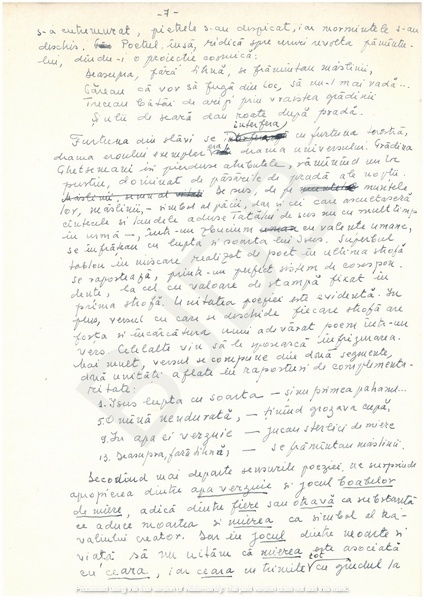 - 7 -
s-a cutremurat, pietrele s-au despicat, iar mormintele s-au
deschis. Poetul, însă, ridică spre ceruri revolta pămîntu-
lui, dîndu-i o proiecție cosmică:
Deasupra, fără tihnă, se frămîntau măslinii,
Păreau că vor să fugă din loc, să nu-l mai vadă...
Treceau bătăi de aripi prin vraiștea grădinii
Și uliii de seară dau roate după pradă.
Furtuna din slăvi se interfera cu furtuna terestră,
drama eroului exemplar drama universului. Grădina
Ghetsemani își pierduse atributele, rămînînd un
pustiu, dominat de păsările de pradă ale nopții.
Iisus, de pe muntele
lor, măslinii, - simbol al păcii, dar și cei care ascultaseră
cînticele și laudele aduse Tatălui de sus nu cu mult timp
în urmă -, într-un zbucium cu valențe umane,
se înfrățeau cu lupta și soarta lui Iisus. Superbul
tablou în mișcare realizat de poet în ultima strofă
se raportează, printr-un perfect sistem de corespon-
dențe, la cel cu valoare de stampă fixat în
prima strofă. Unitatea poeziei este evidentă. În
plus, versul cu care se deschide fiecare strofă are
forța și încărcătura unui adevărat poem într-un
vers. Celelalte vin să le sporească înfrigurarea.
Mai mult, versul se compune din două segmente,
două unități aflate în raporturi de complementa-
ritate:
1. Iisus lupta cu soarta - și nu primea paharul...
5. O mînă nendurată, - ținînd grozava cupă,
9. În apa ei verzuie - jucau sterlici de miere
13. Deasupra, fără tihnă, - se frămîntau măslinii.
Decodînd mai departe sensurile poeziei, ne surprinde
apropierea dintre apa verzuie și jocul boabelor
de miere, adică dintre fiere sau otravă ca substanță
ce aduce moartea și mierea ca simbol al tra-
valiului creator. Dar în jocul dintre moarte și
viață să nu uităm că mierea este asociată
cu ceara, iar ceara ne trimite tot cu gîndul la